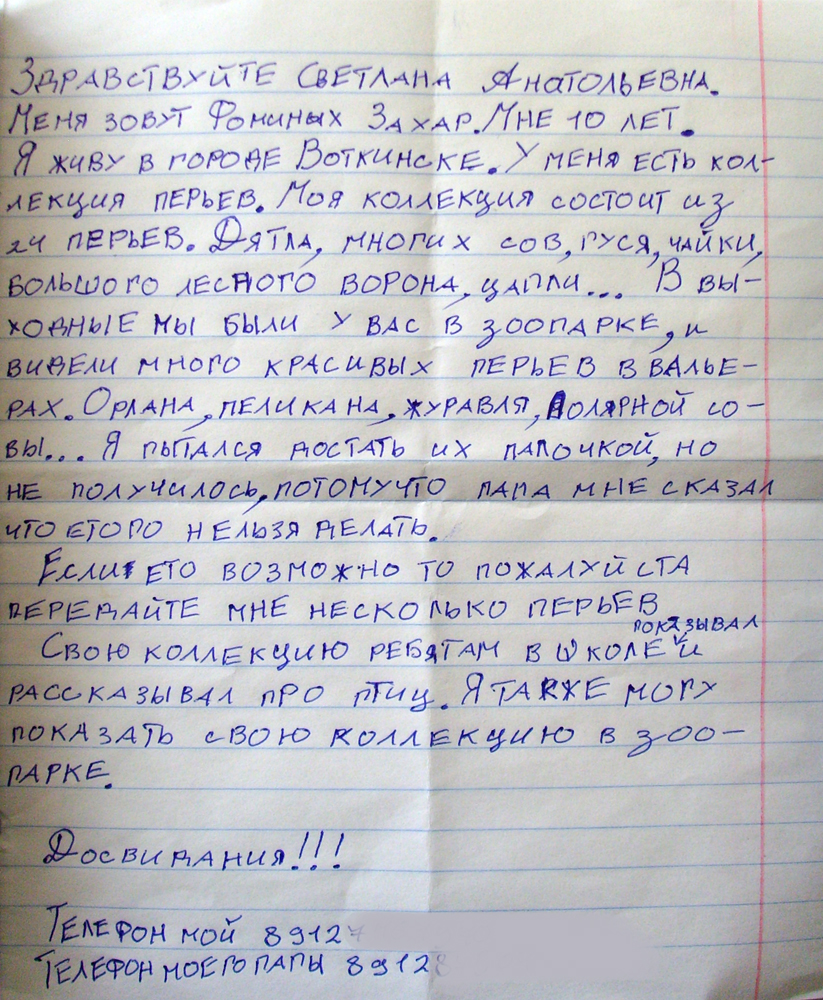 Здравствуйте Светлана Анатольевна.
Меня зовут Фоминых Захар. Мне 10 лет.
Я живу в городе Воткинске. У меня есть кол-
лекция перьев. Моя коллекция состоит из
24 перьев. Дятла, многих сов, гуся, чайки,
большого лесного ворона, цапли... В вы-
ходные мы были у вас в зоопарке, и
видели много красивых перьев в валье-
рах. Орлана, пеликана, журавля, полярной со-
вы... Я пытался достать их палочкой, но
не получилось, потому что папа мне сказал
что етого нельзя делать.
Если ето возможно то пожалуйста
передайте мне несколько перьев
показывал
Свою коллекцию ребятам в школе и
рассказывал про птиц. Я также могу
показать свою коллекцию в зоо-
парке.
Досвидания!!!
Телефон мой 89127
Телефон моего папы 89128